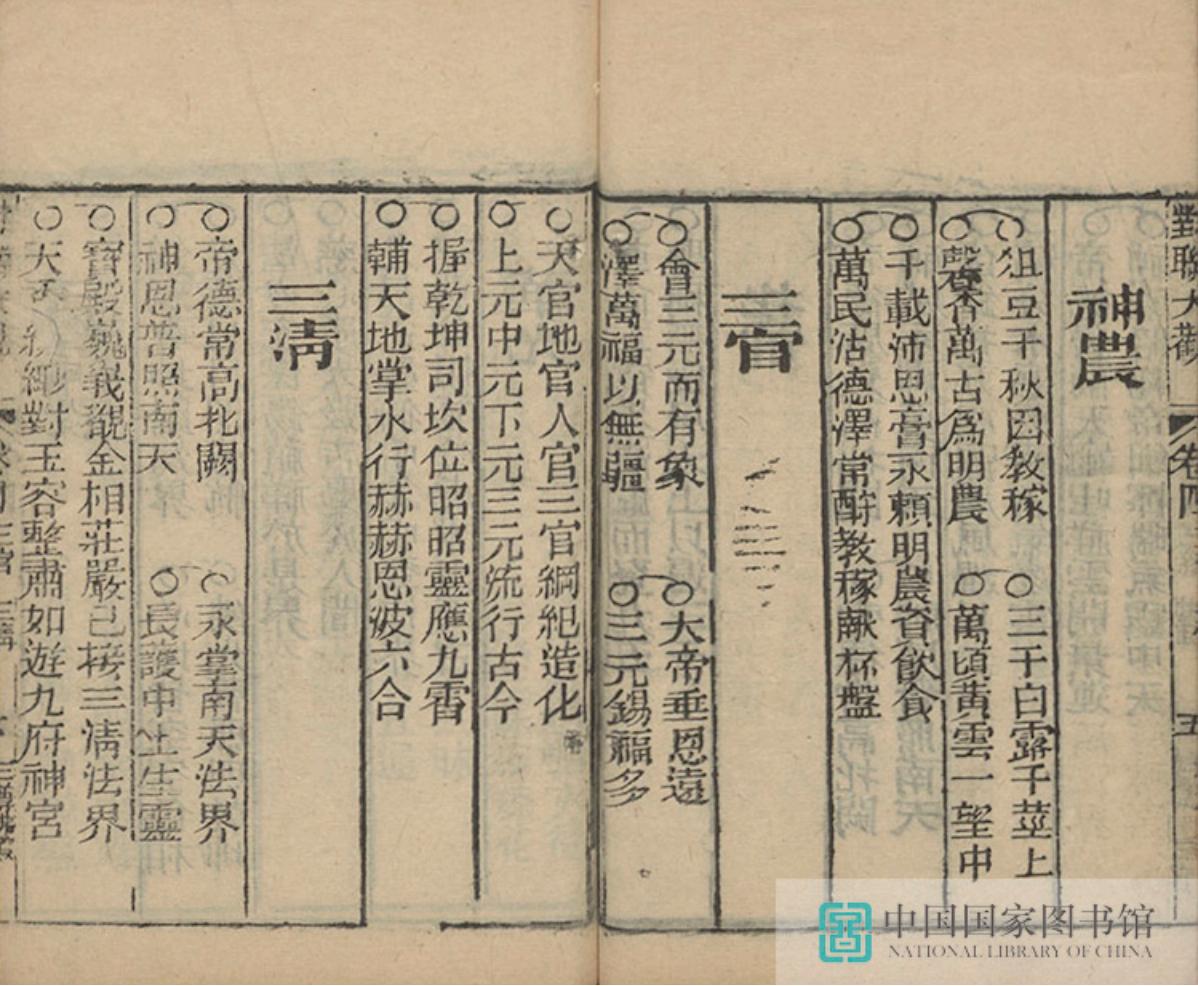 對聯大觀 卷四 五
神農
○俎豆千秋因教稼 ○三千白露千莖上
○馨香萬古爲明農 ○萬頃黃雲一望中
○千載沛恩膏永賴明農資飲食
○萬民沾德澤常酧教稼献杯盤
三官
○會三元而有象 ○大帝垂恩遠
○澤萬福以無疆 ○三元錫福多
○天官地官人官三官綱紀造化
○上元中元下元三元流行古今
○握乾坤司坎位昭昭靈應九霄
○輔天地掌水行赫赫恩波六合
三清
○帝德常高北闕 ○永掌南天法界
○神恩普照南天 ○長護中土生靈
○寶殿巍峩覩金相莊嚴已接三清法界
○天 對玉容整肅如遊九府神宮
卷四三官 三清
中国国家图书馆
NATIONAL LIBRARY OF CHINA